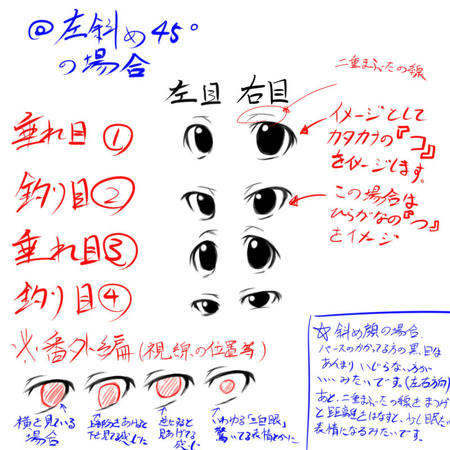 @左斜め45°
の場合
二重まぶたの線
左目 右目
垂れ目①
イメージとして
カタカナの『つ』
をイメージします。
釣り目②
この場合は
ひらがなの『つ』
をイメージ
垂れ目③
釣り目④
※番外編(視線の位置等)
横を見ている
場合
下を見る感じ
見あげてる
感じ
いわゆる「三白眼」
驚いてる表情とかに
☆斜め顔の場合、
パースのかかってる方の黒目は
あんまりいじらない方が
いいみたいです。(左右方向)
あと、二重まぶたの線とまつげ
と距離をはなすと、少し眠た
表情になるみたいです。